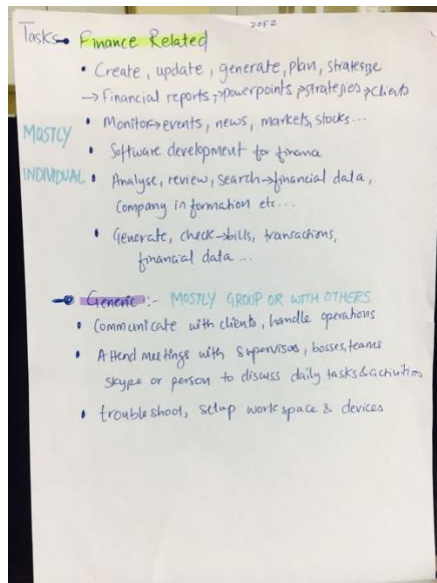 2 OF 2
Tasks → Finance Related
• Create, update, generate, plan, strategize
→ Financial reports, → powerpoints, → strategies, → clients
• Monitor → events, news, markets, stocks...
MOSTLY
• Software development for finance
INDIVIDUAL
• Analyse, review, search → financial data,
Company information etc...
• Generate, check → bills, transactions,
financial data...
→ Generic :- MOSTLY GROUP OR WITH OTHERS
• Communicate with clients, handle operations
• Attend meetings with supervisors, bosses, teams
skype or person to discuss daily tasks & activities
• troubleshoot, setup work space & devices